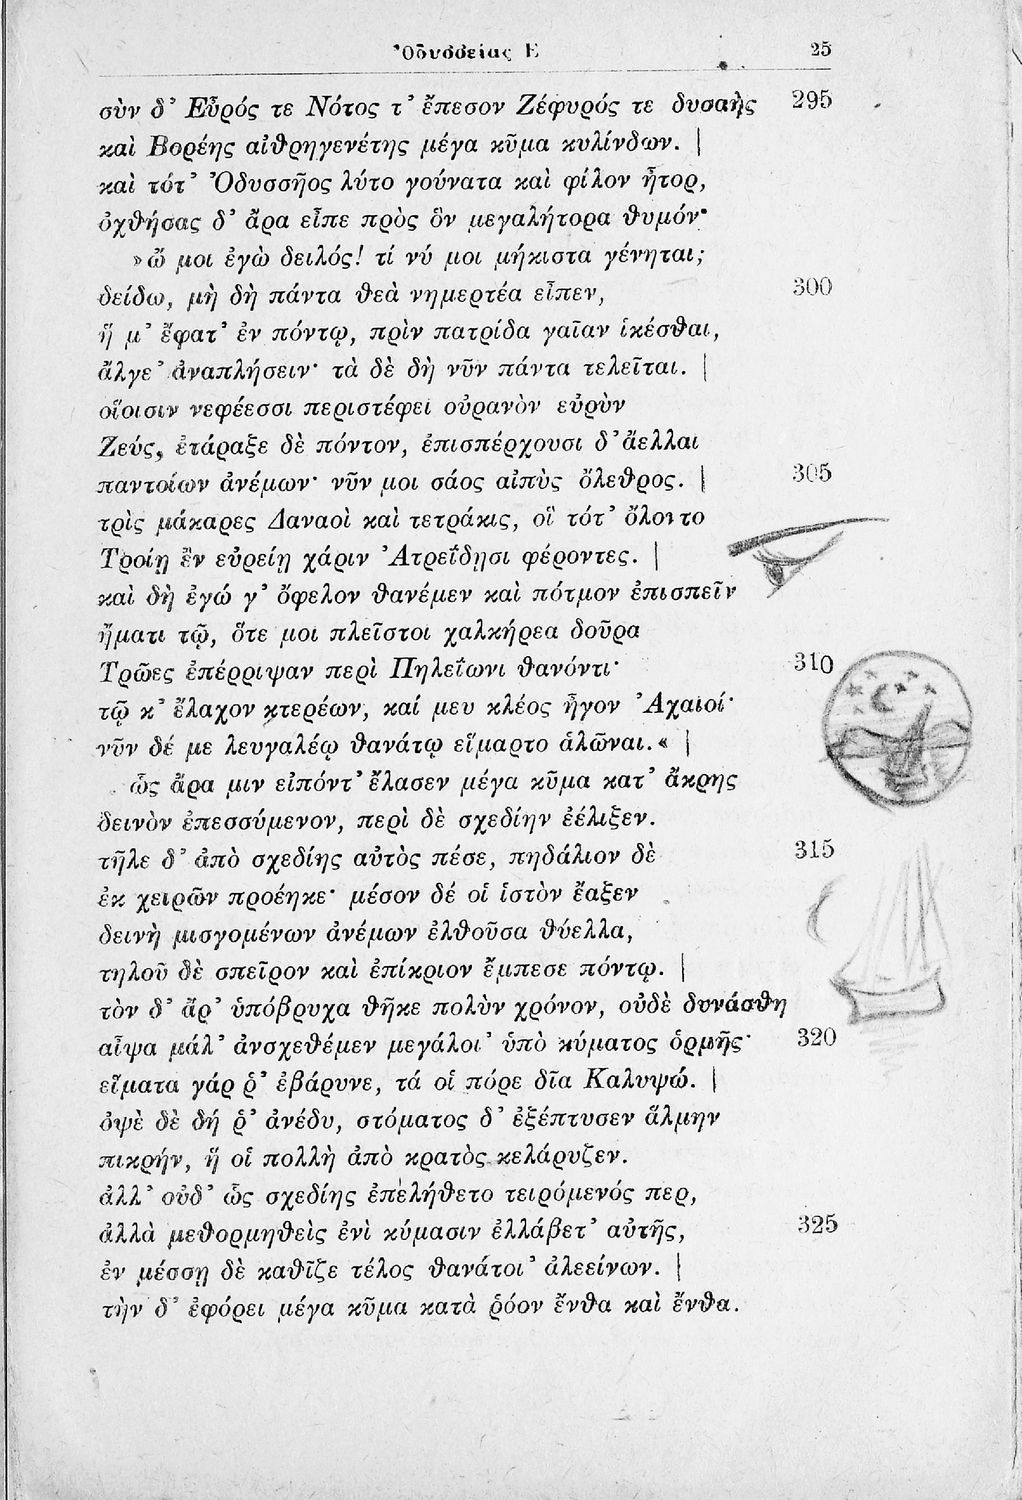 Ὀδυσσείας Ε 25
σὺν δ' Εὖρός τε Νότος τ' ἔπεσον Ζέφυρός τε δυσαὴς 295
καὶ Βορέης αἰθρηγενέτης μέγα κῦμα κυλίνδων. |
καὶ τότ' Ὀδυσσῆος λύτο γούνατα καὶ φίλον ἦτορ,
ὀχθήσας δ' ἄρα εἶπε πρὸς ὃν μεγαλήτορα θυμόν·
»ὤ μοι ἐγὼ δειλός! τί νύ μοι μήκιστα γένηται;
δείδω, μὴ δὴ πάντα θεὰ νημερτέα εἶπεν, 300
ἥ μ' ἔφατ' ἐν πόντῳ, πρὶν πατρίδα γαῖαν ἱκέσθαι,
ἄλγε' ἀναπλήσειν· τὰ δὲ δὴ νῦν πάντα τελεῖται. |
οἵοισιν νεφέεσσι περιστέφει οὐρανὸν εὐρὺν
Ζεύς, ἐτάραξε δὲ πόντον, ἐπισπέρχουσι δ' ἄελλαι
παντοίων ἀνέμων· νῦν μοι σάος αἰπὺς ὄλεθρος. | 305
τρὶς μάκαρες Δαναοὶ καὶ τετράκις, οἳ τότ' ὄλοντο
Τροίῃ ἐν εὐρείῃ χάριν Ἀτρεΐδῃσι φέροντες. |
καὶ δὴ ἐγώ γ' ὄφελον θανέμεν καὶ πότμον ἐπισπεῖν
ἤματι τῷ, ὅτε μοι πλεῖστοι χαλκήρεα δοῦρα
Τρῶες ἐπέρριψαν περὶ Πηλεΐωνι θανόντι· 310
τῷ κ' ἔλαχον κτερέων, καί μευ κλέος ἦγον Ἀχαιοί·
νῦν δέ με λευγαλέῳ θανάτῳ εἵμαρτο ἁλῶναι.« |
ὣς ἄρα μιν εἰπόντ' ἔλασεν μέγα κῦμα κατ' ἄκρης
δεινὸν ἐπεσσύμενον, περὶ δὲ σχεδίην ἐέλιξεν.
τῆλε δ' ἀπὸ σχεδίης αὐτὸς πέσε, πηδάλιον δὲ 315
ἐκ χειρῶν προέηκε· μέσον δέ οἱ ἱστὸν ἔαξεν
δεινὴ μισγομένων ἀνέμων ἐλθοῦσα θύελλα,
τηλοῦ δὲ σπεῖρον καὶ ἐπίκριον ἔμπεσε πόντῳ. |
τὸν δ' ἄρ' ὑπόβρυχα θῆκε πολὺν χρόνον, οὐδὲ δυνάσθη
αἶψα μάλ' ἀνσχεθέμεν μεγάλοι' ὑπὸ κύματος ὁρμῆς· 320
εἵματα γάρ ῥ' ἐβάρυνε, τά οἱ πόρε δῖα Καλυψώ. |
ὀψὲ δὲ δή ῥ' ἀνέδυ, στόματος δ' ἐξέπτυσεν ἅλμην
πικρήν, ἥ οἱ πολλὴ ἀπὸ κρατὸς κελάρυζεν.
ἀλλ' οὐδ' ὣς σχεδίης ἐπελήθετο τειρόμενός περ,
ἀλλὰ μεθορμηθεὶς ἐνὶ κύμασιν ἐλλάβετ' αὐτῆς, 325
ἐν μέσσῃ δὲ καθῖζε τέλος θανάτοι' ἀλεείνων. |
τὴν δ' ἐφόρει μέγα κῦμα κατὰ ῥόον ἔνθα καὶ ἔνθα.